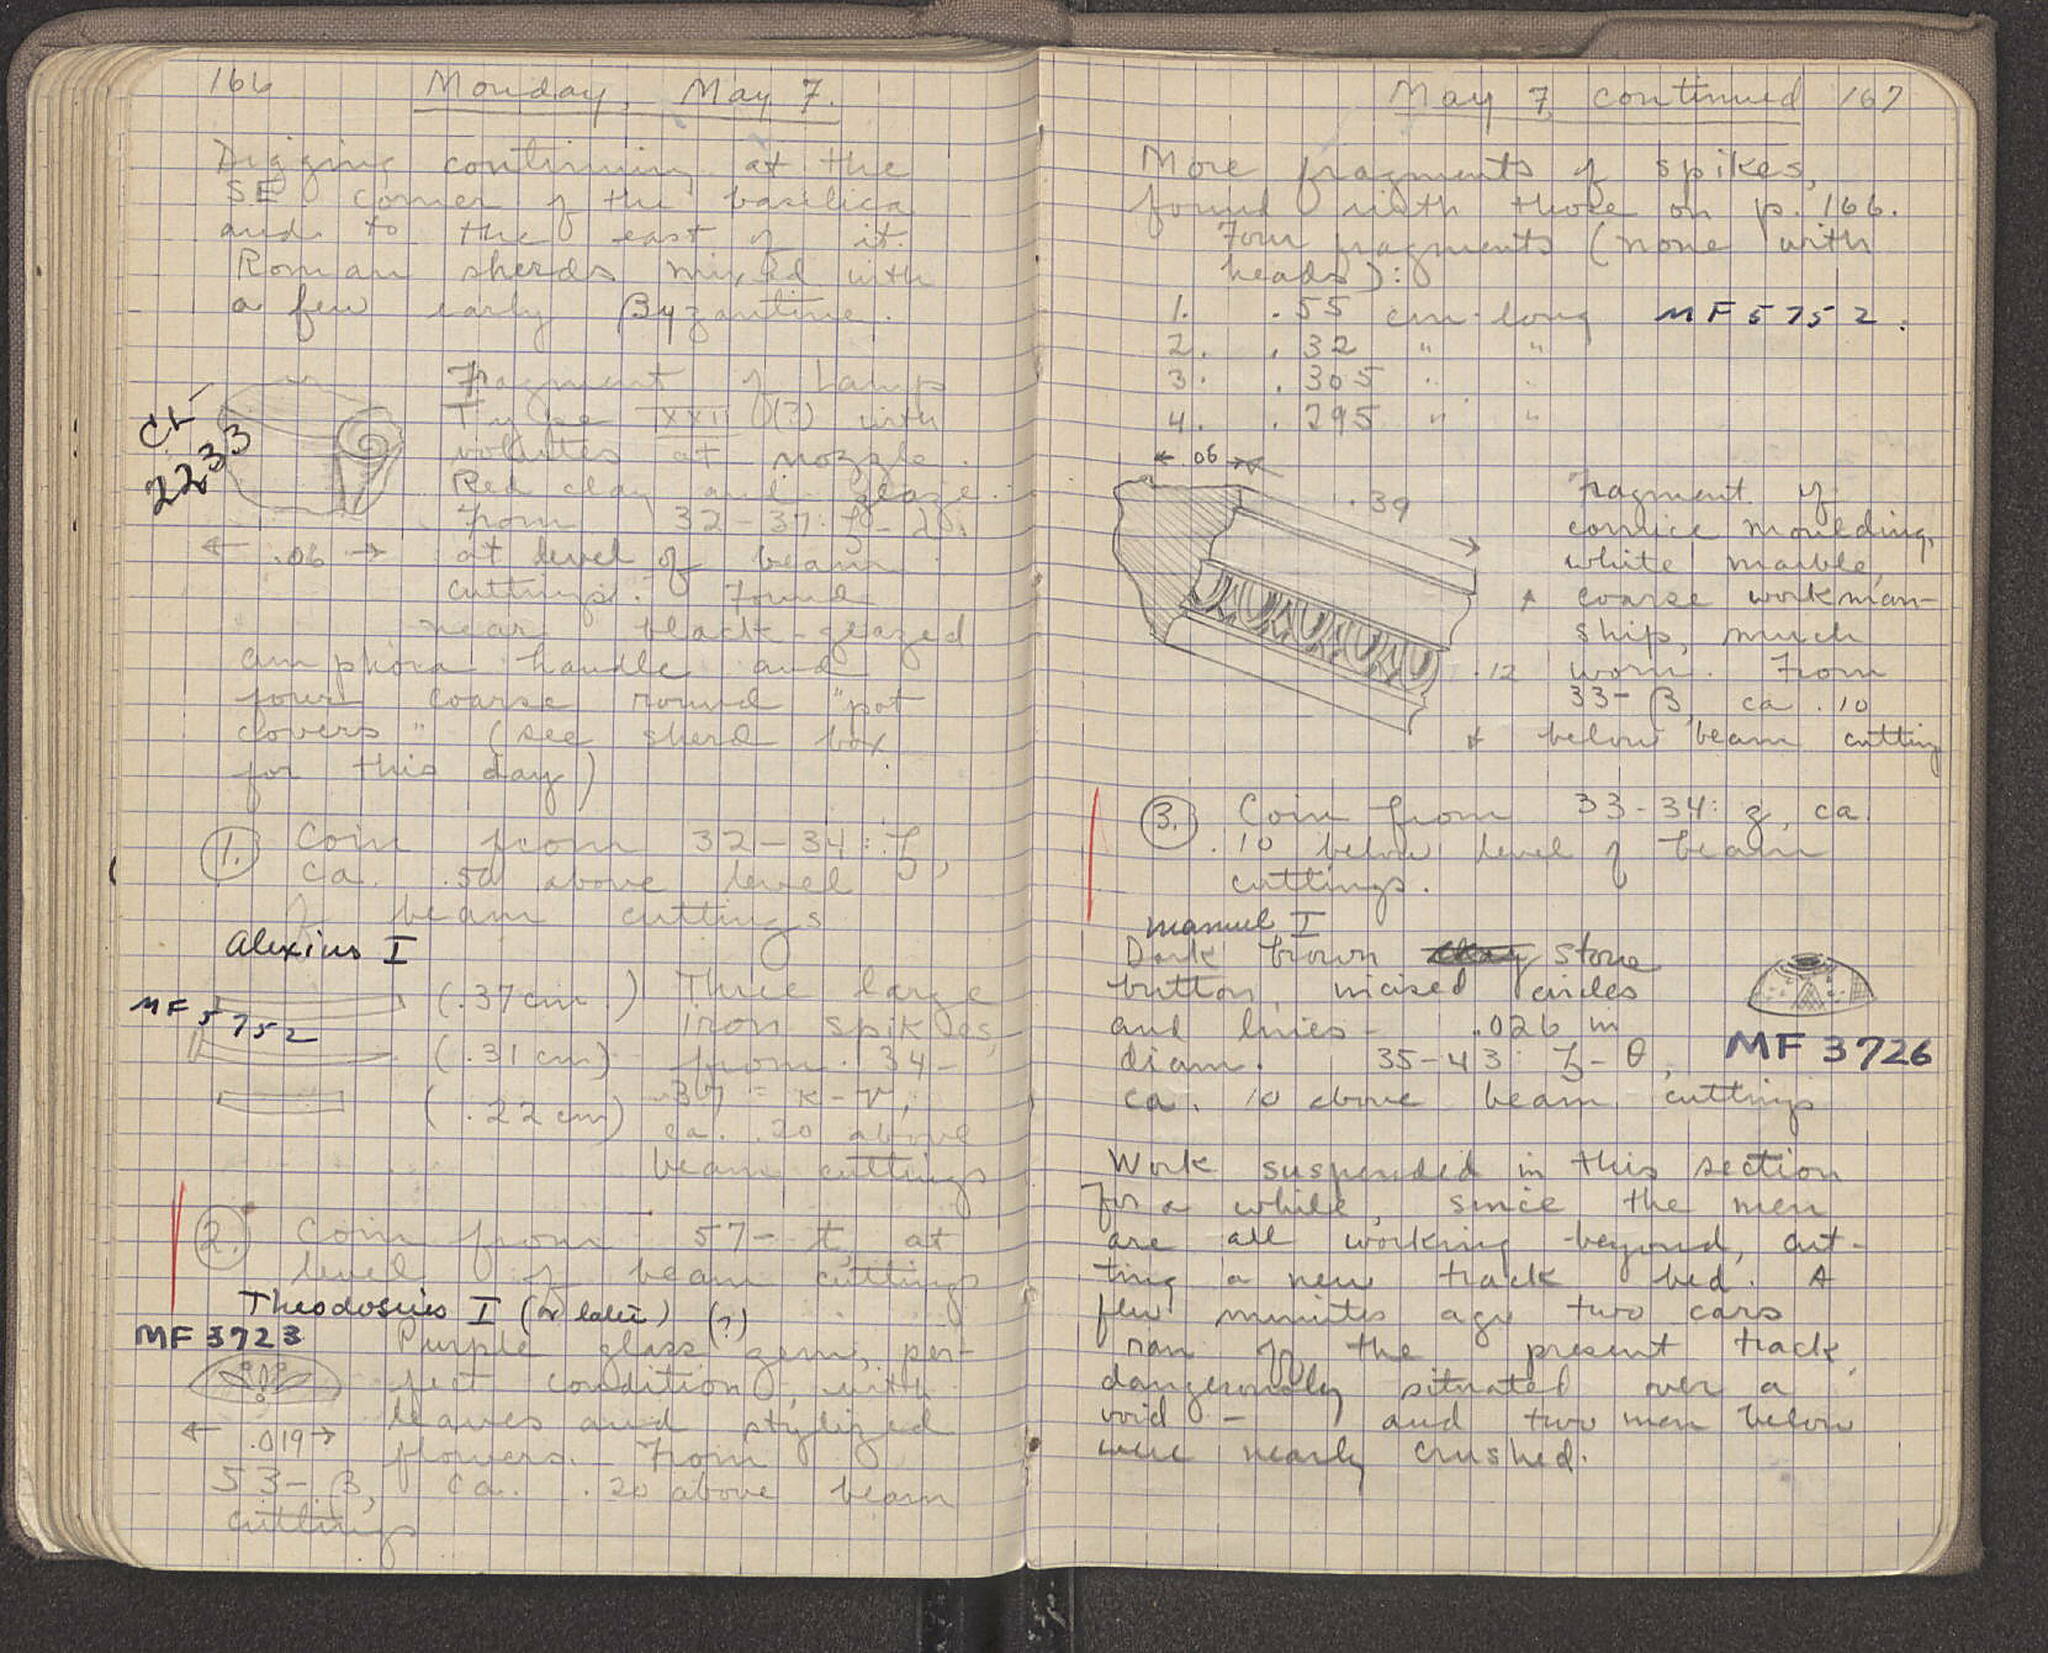 166 Monday, May 7.
Digging continuing at the
SE corner of the basilica
and to the east of it.
Roman sherds mixed with
a few early Byzantine.
CL
2233
Fragment of Lamp
Type XXII (?) with
volutes at nozzle.
Red clay and glaze.
From 32-37:
.06
at level of beam
cuttings. Found
near black-glazed
amphora handle and
four coarse round "pot
covers" (see sherd box
for this day)
1. Coin from 32-34: ζ,
ca. .50 above level
of beam cuttings
Alexius I
MF 5752
(.37 cm) Three large
iron spikes,
(.31 cm) from 34-
(.22 cm) 37 = K-
ca. .20 above
beam cuttings
2. Coin from 57- t, at
level of beam cuttings
Theodosius I (or later) (?)
MF 3723
Purple glass gem, per-
fect condition, with
leaves and stylized
.019
flowers. From
53-β, ca. .20 above beam
cuttings
May 7 continued 167
More fragments of spikes,
found with those on p. 166.
Four fragments (none with
heads):
1. .55 cm long MF 5752.
2. .32 " "
3. .305 " "
4. .295 " "
.06
.39
Fragment of
cornice moulding,
white marble,
coarse workman-
ship, much
.12 worn. From
33-β ca .10
below beam cutting
3. Coin from 33-34: ζ, ca.
.10 below level of beam
cuttings.
Manuel I
Dark brown clay stone
button, incised circles
and lines - .026 m
diam. 35-43: ζ-θ,
MF 3726
ca. .10 above beam cuttings
Work suspended in this section
for a while, since the men
are all working beyond, cut-
ting a new track bed. A
few minutes ago two cars
ran off the present track,
dangerously situated over a
void - and two men below
were nearly crushed.